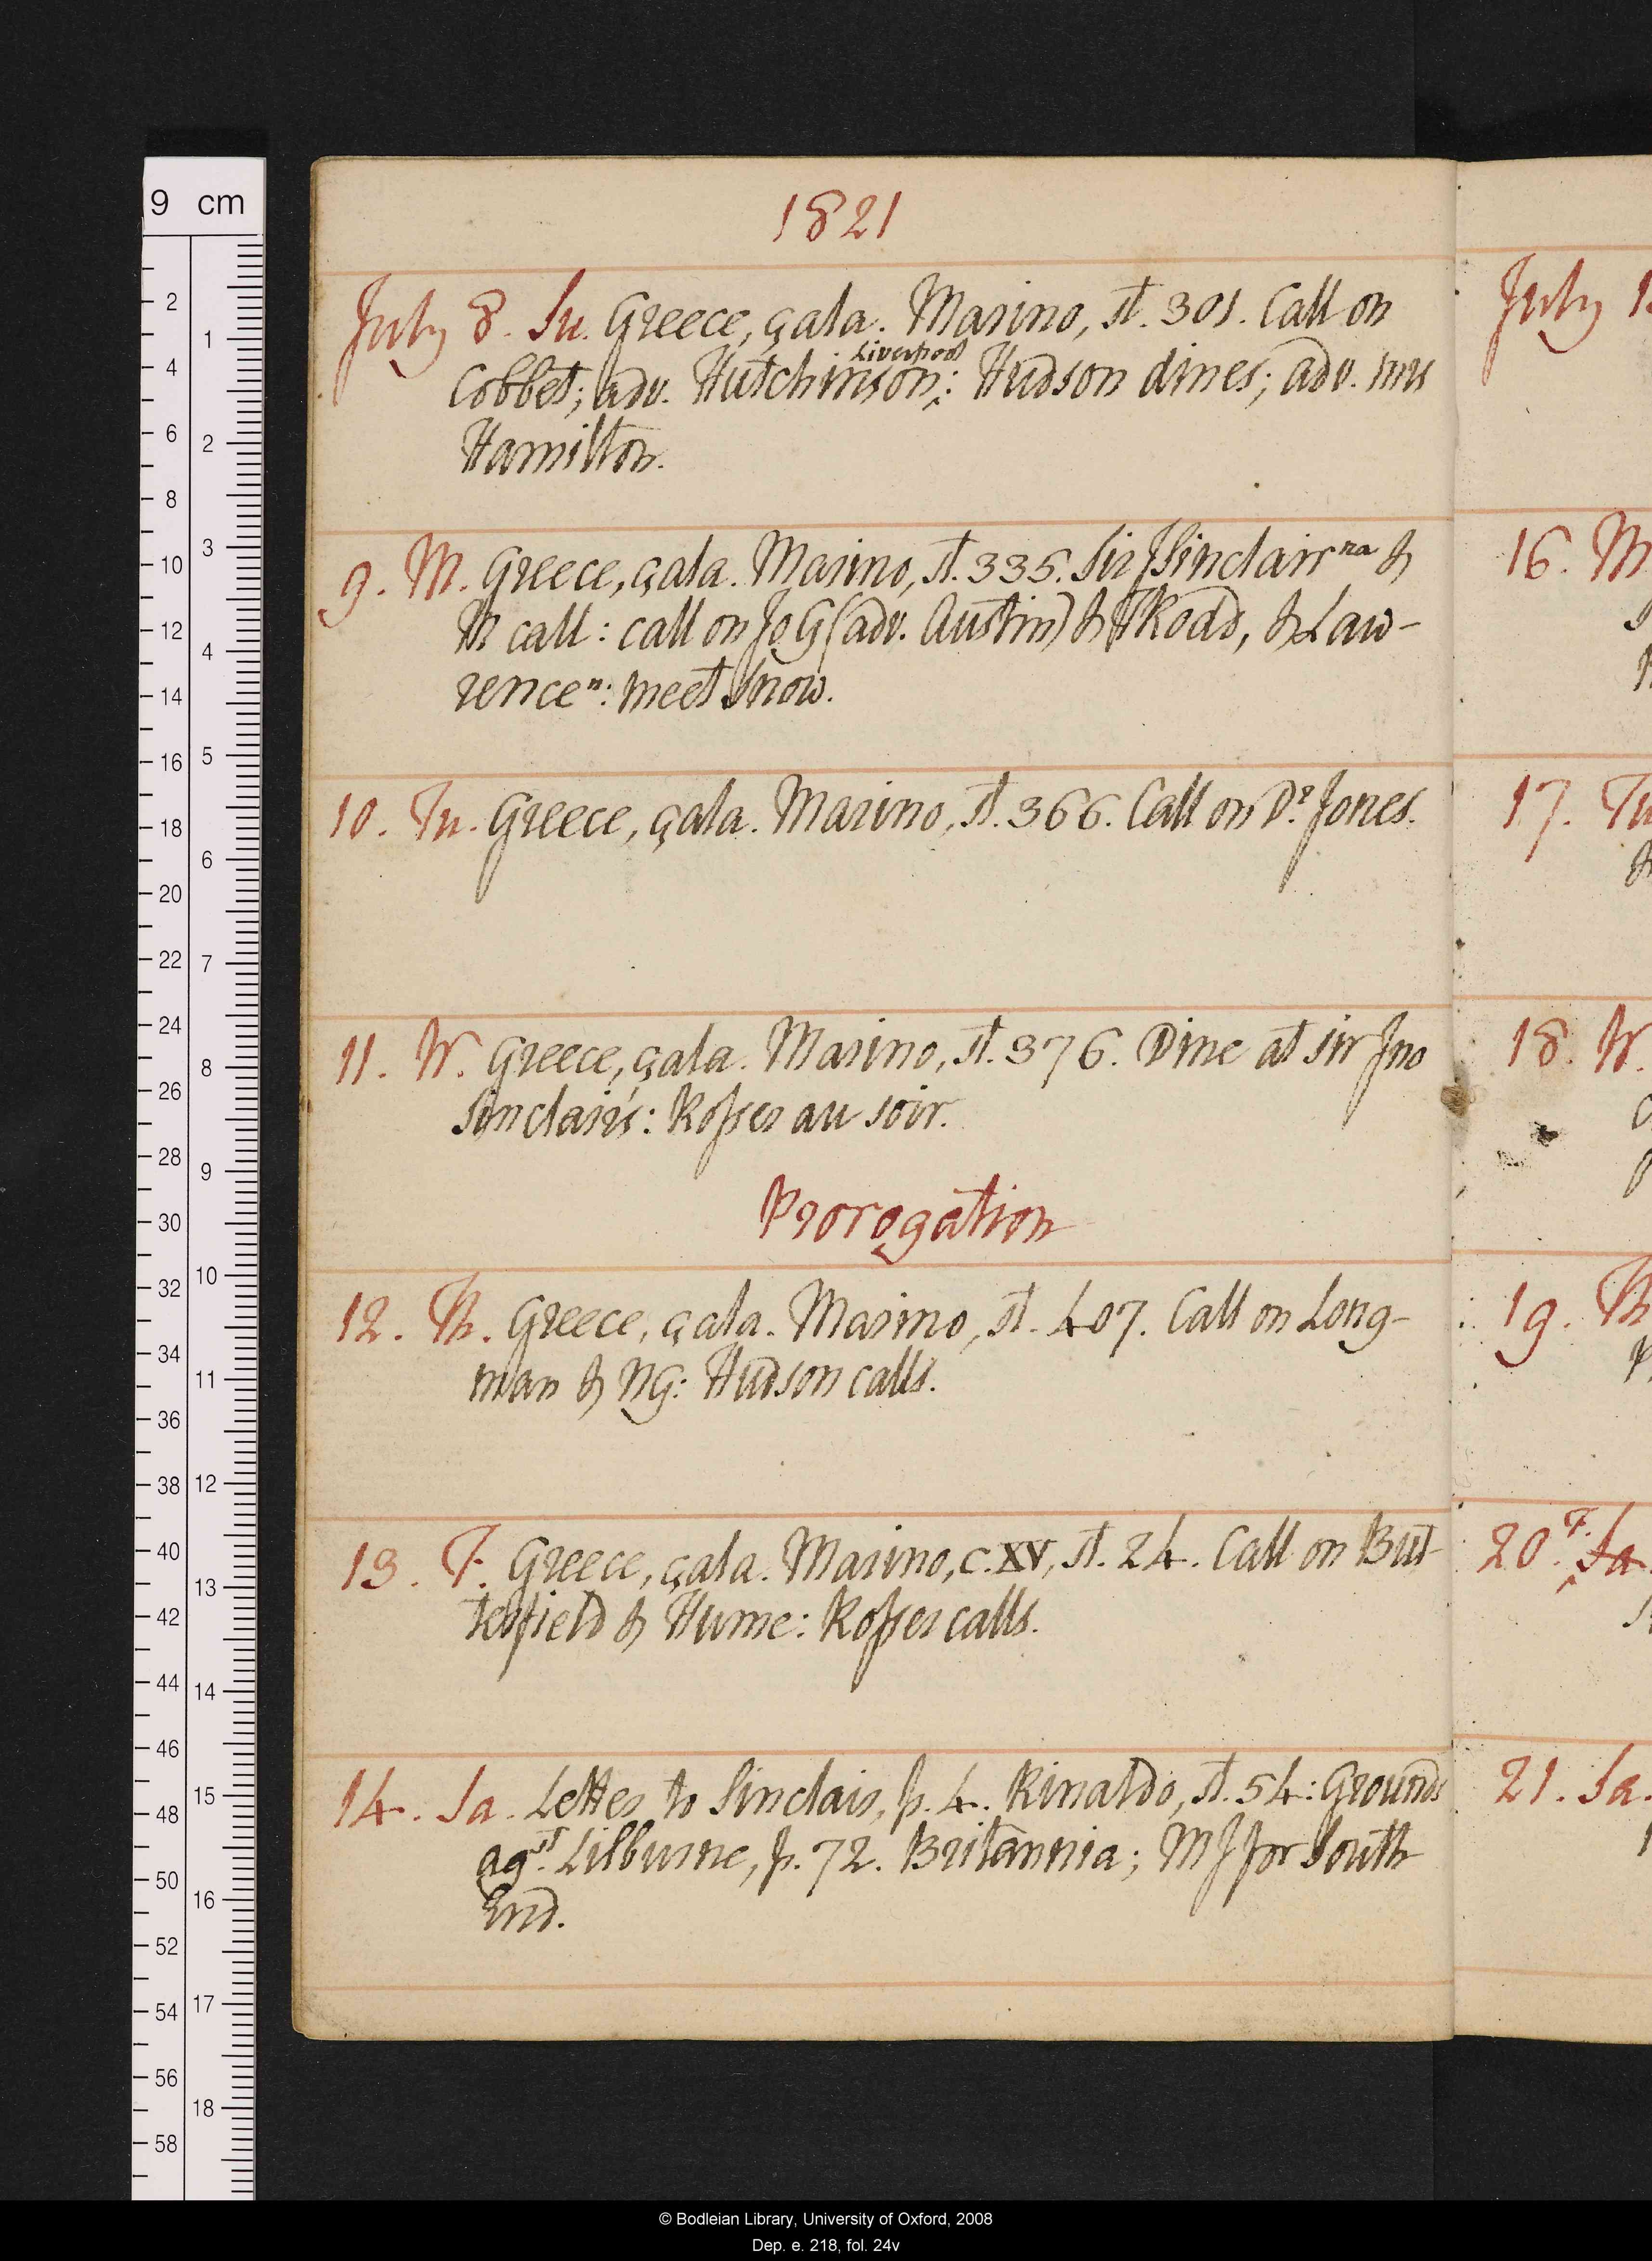 1821
July 8. Su. Greece, çala. Marino, st. 301. Call on
Cobbet; adv. Hutchinson, Liverpool: Hudson dines; adv. mrs
Hamilton.
9. M. Greece, çala. Marino, st. 335. Sir J Sinclair na &
M call: call on Jo G (adv. Austin) & H Road, & Law-
rence n: meet Snow.
10. Tu. Greece, çala. Marino, st. 366. Call on Dr Jones.
11. W. Greece, çala. Marino, st. 376. Dine at sir Jno
Sinclair's: Rosser au soir.
Prorogation
12. Th. Greece, çala. Marino, st. 407. Call on Long-
man & NG: Hudson calls.
13. F. Greece, çala. Marino, c. XV, st. 24. Call on But-
terfield & Hume: Rosser calls.
14. Sa. Letter to Sinclair, p. 4. Rinaldo, st. 54: Grounds
agst Lilburne, p. 72. Britannia; MJ for South
End.
July 1
16. M
17. Tu
18. W.
19. Th
20. F. Sa.
21. Sa.
9 cm
2 4 6 8 10 12 14 16 18 20 22 24 26 28 30 32 34 36 38 40 42 44 46 48 50 52 54 56 58
1 2 3 4 5 6 7 8 9 10 11 12 13 14 15 16 17 18
© Bodleian Library, University of Oxford, 2008
Dep. e. 218, fol. 24v